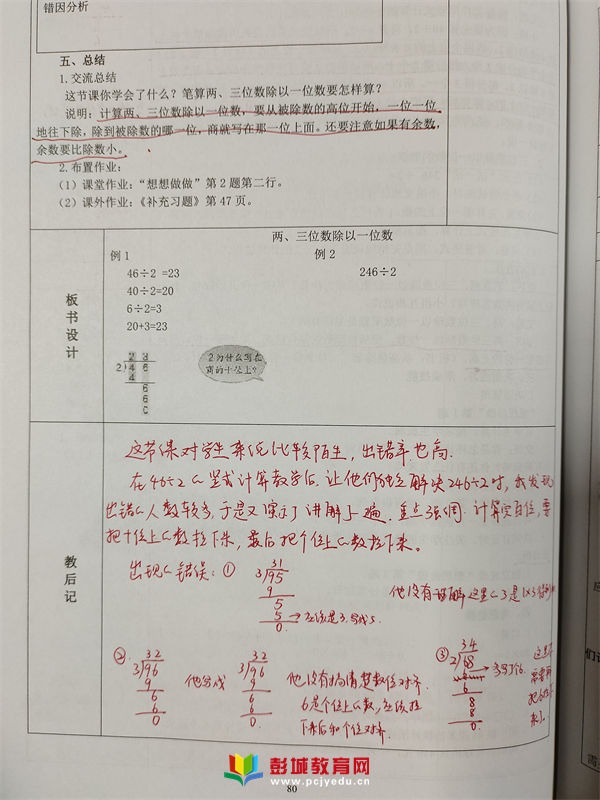 错因分析
五、总结
1.交流总结
这节课你学会了什么？笔算两、三位数除以一位数要怎样算？
说明：计算两、三位数除以一位数，要从被除数的高位开始，一位一位
地往下除，除到被除数的哪一位，商就写在那一位上面。还要注意如果有余数，
余数要比除数小。
2.布置作业：
（1）课堂作业：“想想做做”第2题第二行。
（2）课外作业：《补充习题》第47页。
板书设计
两、三位数除以一位数
例1 例2
46÷2 =23 246÷2
40÷2=20
6÷2=3
20+3=23
2 3
2)4 6
4
6
6
0
2为什么写在
商的十位上？
教后记
这节课对学生来说比较陌生，出错率也高.
在46÷2的竖式计算教学后.让他们独立解决246÷2时,我发现
出错的人数较多,于是又讲解了一遍.重点强调.计算完百位,要
把十位上的数拉下来,最后把个位上的数拉下来。
出现的错误:①
31
3)95
9
5
5→应该是3.写成5.
0.
他没有理解这里的3是1×3得到
②
32
3)96
9
6
6
0
他写成
32
3)96
9
6
6
0
他没有搞清楚数位对齐.
6是个位上的数,应该拉
下来后和个位对齐.
③
34
2)68
6
8
8
0
多写了6.
彭城教育网
www.pcjyedu.com
80